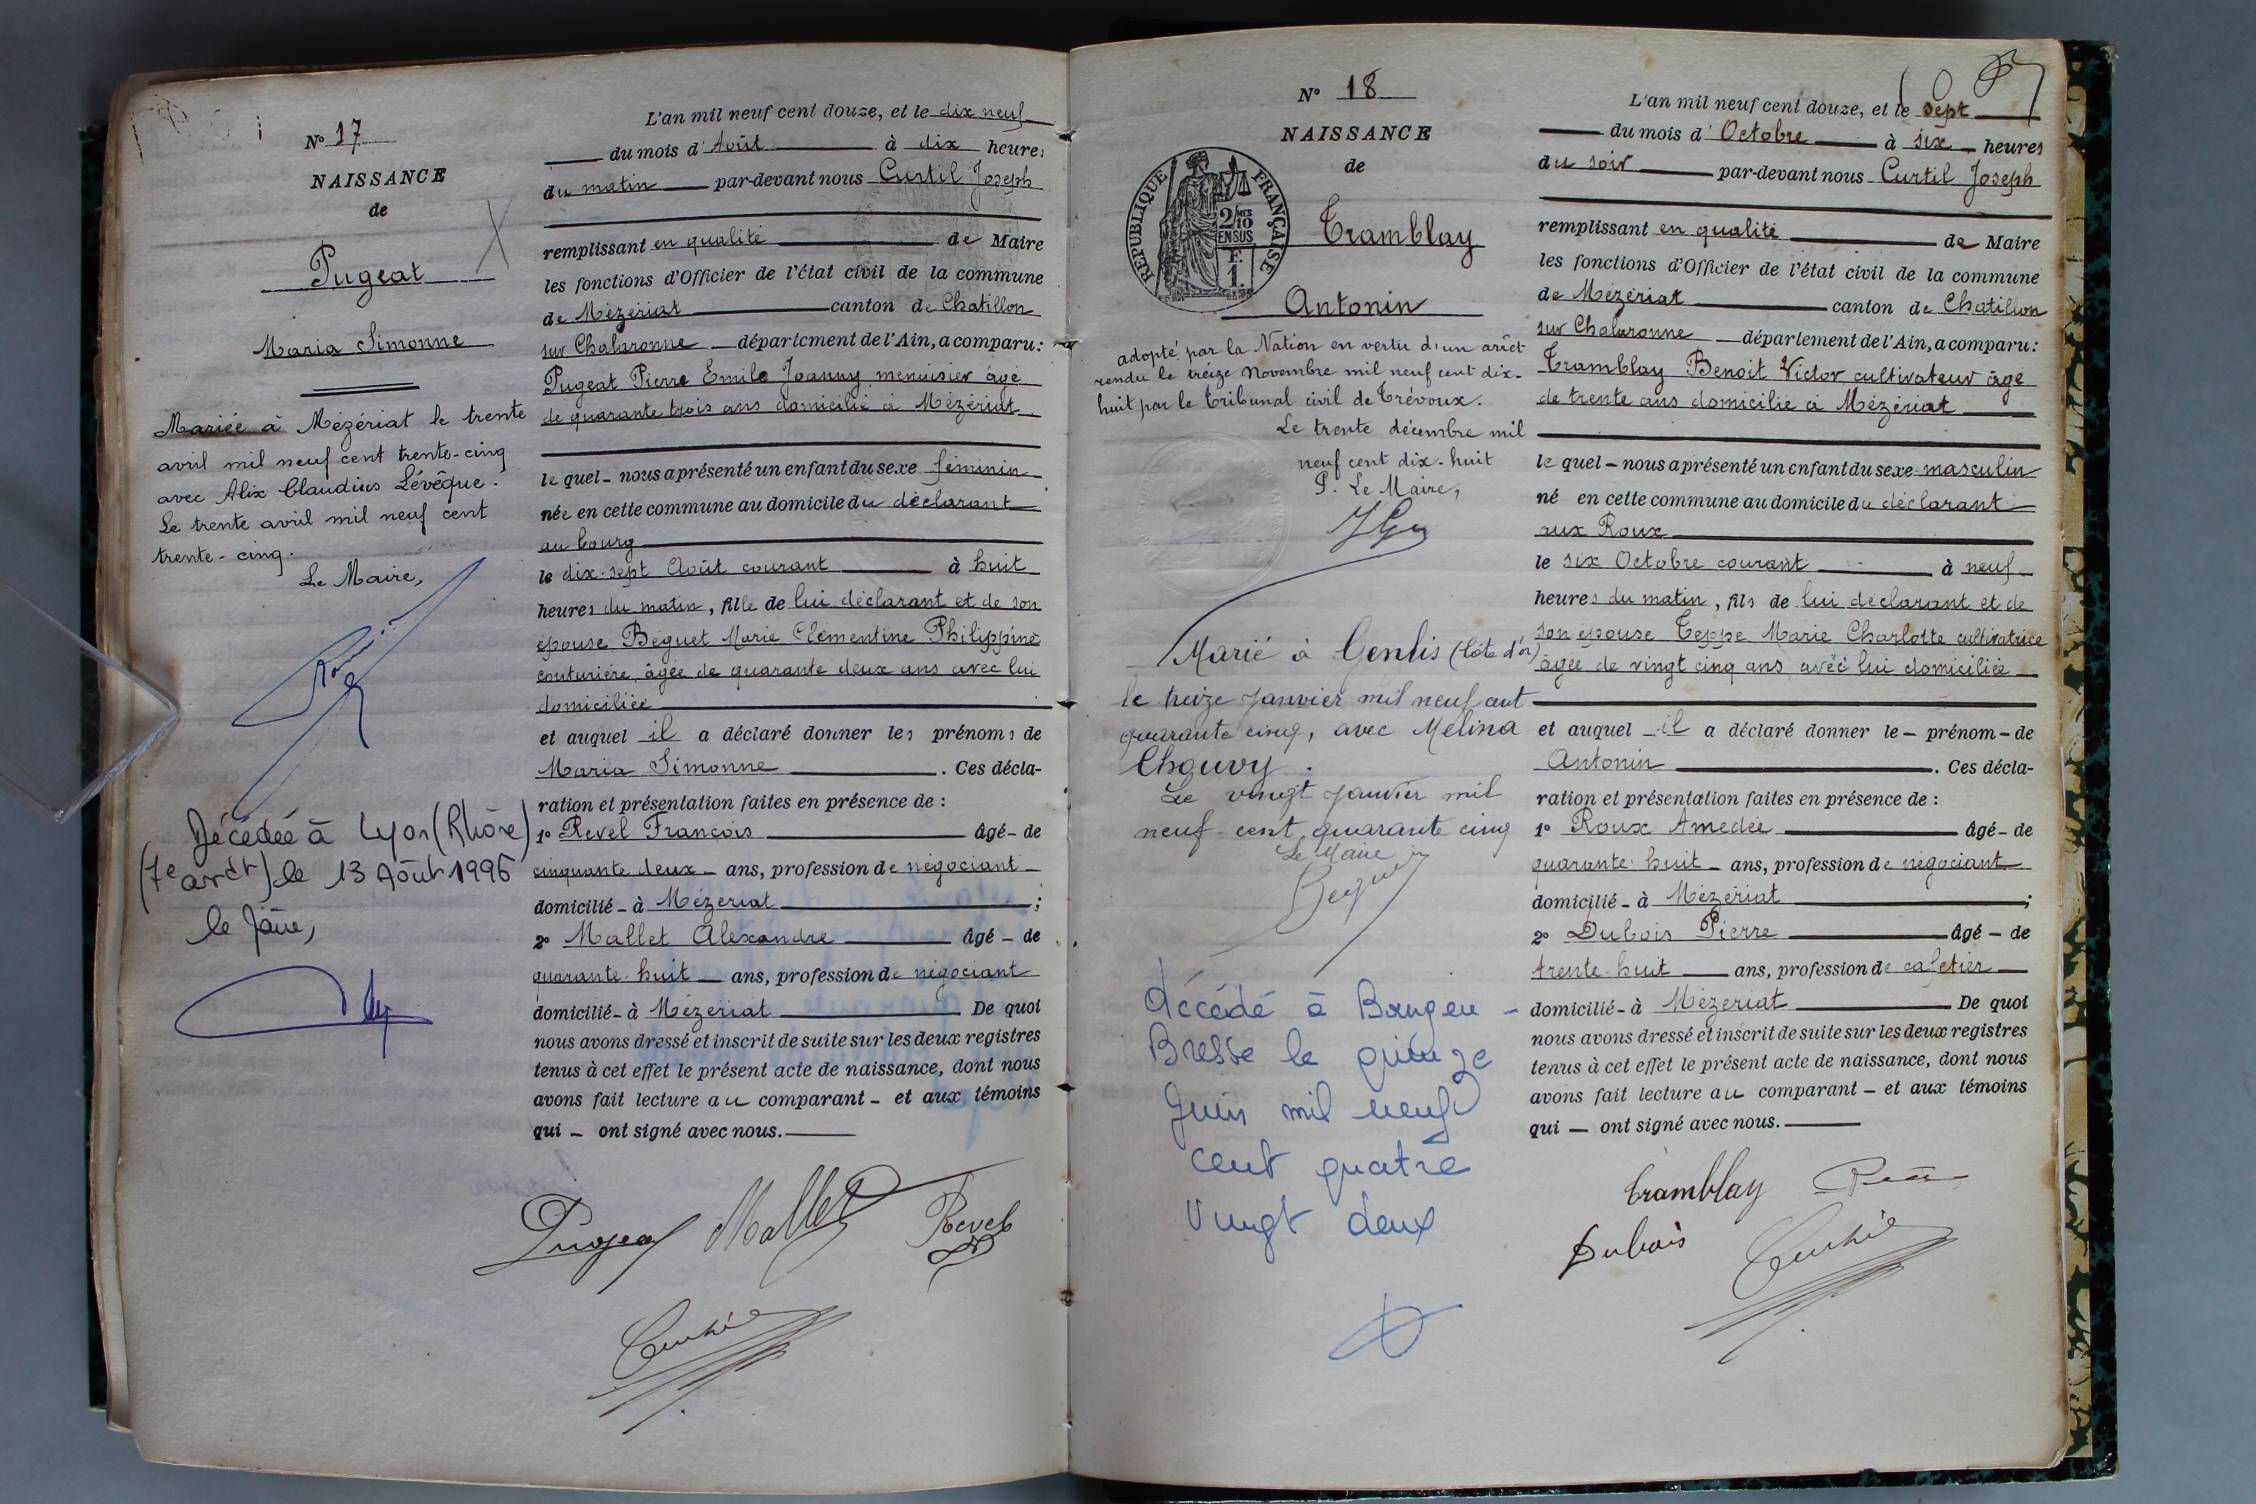 Nº 17
NAISSANCE
de
Pugeat
Maria Simonne
Mariée à Mézériat le trente
avril mil neuf cent trente-cinq
avec Alix Claudius Lévêque.
Le trente avril mil neuf cent
trente-cinq.
Le Maire,
Décédée à Lyon (Rhône)
(7e ardt) le 13 Août 1996
le Maire,
L'an mil neuf cent douze, et le dix neuf
du mois d'Août à dix heures
du matin par-devant nous Curtil Joseph
remplissant en qualité de Maire
les fonctions d'Officier de l'état civil de la commune
de Mézériat canton de Chatillon
sur Chalaronne département de l'Ain, a comparu:
Pugeat Pierre Emile Joanny menuisier âgé
de quarante trois ans domicilié à Mézériat
le quel - nous a présenté un enfant du sexe féminin
née en cette commune au domicile du déclarant
au bourg
le dix-sept Août courant à huit
heures du matin, fille de lui déclarant et de son
épouse Béguet Marie Clémentine Philippine
couturière, âgée de quarante deux ans avec lui
domiciliée
et auquel il a déclaré donner les prénoms de
Maria Simonne. Ces décla-
ration et présentation faites en présence de :
1º Revel François âgé - de
cinquante deux - ans, profession de négociant
domicilié - à Mézériat ;
2º Mallet Alexandre âgé - de
quarante-huit ans, profession de négociant
domicilié - à Mézériat De quoi
nous avons dressé et inscrit de suite sur les deux registres
tenus à cet effet le présent acte de naissance, dont nous
avons fait lecture au comparant - et aux témoins
qui - ont signé avec nous.
Pugeat Mallet Revel
Nº 18
NAISSANCE
de
RÉPUBLIQUE FRANÇAISE
2/10MES
EN SUS
F.
1.
Tramblay
Antonin
adopté par la Nation en vertu d'un arrêt
rendu le treize Novembre mil neuf cent dix-
huit par le Tribunal civil de Trévoux.
Le trente décembre mil
neuf cent dix-huit
P. Le Maire,
Marié à Genlis (Côte d'or)
le treize Janvier mil neuf cent
quarante cinq, avec Melina
Chouvy.
Le vingt janvier mil
neuf cent quarante cinq
Le Maire
Décédé à Bourg en -
Bresse le quinze
Juin mil neuf
cent quatre
vingt deux
L'an mil neuf cent douze, et le sept
du mois d'Octobre à six heures
du soir par-devant nous Curtil Joseph
remplissant en qualité de Maire
les fonctions d'Officier de l'état civil de la commune
de Mézériat canton de Chatillon
sur Chalaronne département de l'Ain, a comparu:
Tramblay Benoit Victor, cultivateur âgé
de trente ans domicilié à Mézériat
le quel - nous a présenté un enfant du sexe masculin
né en cette commune au domicile du déclarant
aux Roux
le six Octobre courant à neuf
heures du matin, fils de lui déclarant et de
son épouse Teppe Marie Charlotte cultivatrice
âgée de vingt cinq ans, avec lui domiciliée
et auquel il a déclaré donner le - prénom - de
Antonin. Ces décla-
ration et présentation faites en présence de :
1º Roux Amedée âgé - de
quarante-huit - ans, profession de négociant
domicilié - à Mézériat ;
2º Dubois Pierre âgé - de
trente-huit ans, profession de cafetier
domicilié - à Mézériat De quoi
nous avons dressé et inscrit de suite sur les deux registres
tenus à cet effet le présent acte de naissance, dont nous
avons fait lecture au comparant - et aux témoins
qui - ont signé avec nous.
Tramblay
Dubois